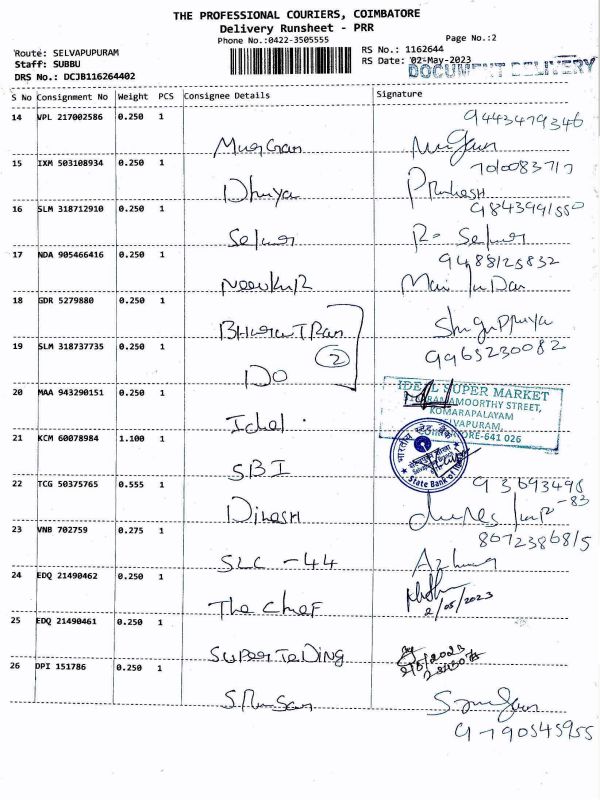 THE PROFESSIONAL COURIERS, COIMBATORE
Delivery Runsheet - PRR
Phone No.:0422-3505555
Page No.:2
Route: SELVAPUPURAM
RS No.: 1162644
Staff: SUBBU
RS Date: 02-May-2023
DOCUMENT DELIVERY
DRS No.: DCJB116264402
S No Consignment No Weight PCS Consignee Details Signature
14 VPL 217002586 0.250 1
9443479346
15 IXM 503108934 0.250 1
Dhivya
Prakash
16 SLM 318712910 0.250 1
Selvar
R. Selvar
17 NDA 905466416 0.250 1
9488125832
18 GDR 5279880 0.250 1
Bharat Ran
2
19 SLM 318737735 0.250 1
9965230082
DO
20 MAA 943290151 0.250 1
IDEAL SUPER MARKET
AMOORTHY STREET,
KOMARAPALAYAM
Ideal
21 KCM 60078984 1.100 1
641 026
SBI
State Bank of India
22 TCG 50375765 0.555 1
93693498
-83
Dinesh
23 VNB 702759 0.275 1
SLC -44
24 EDQ 21490462 0.250 1
The Chief
2/05/2023
25 EDQ 21490461 0.250 1
Super Trading
2/5/2023
26 DPI 151786 0.250 1
9790545955